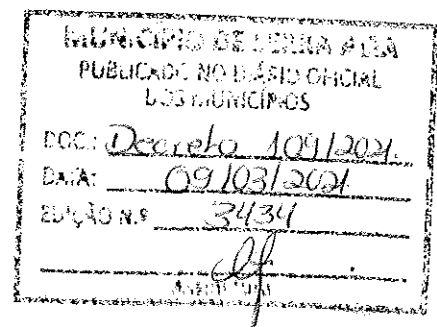 MUNICÍPIO DE SERRA ALTA
PUBLICADO NO DIÁRIO OFICIAL
DOS MUNICÍPIOS
DOC.: Decreto 109/2021.
DATA: 09/03/2021
EDIÇÃO N.º 3434